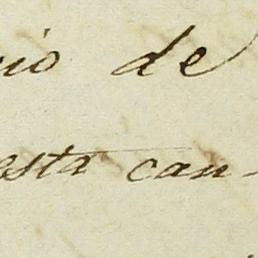 rio de
esta can-